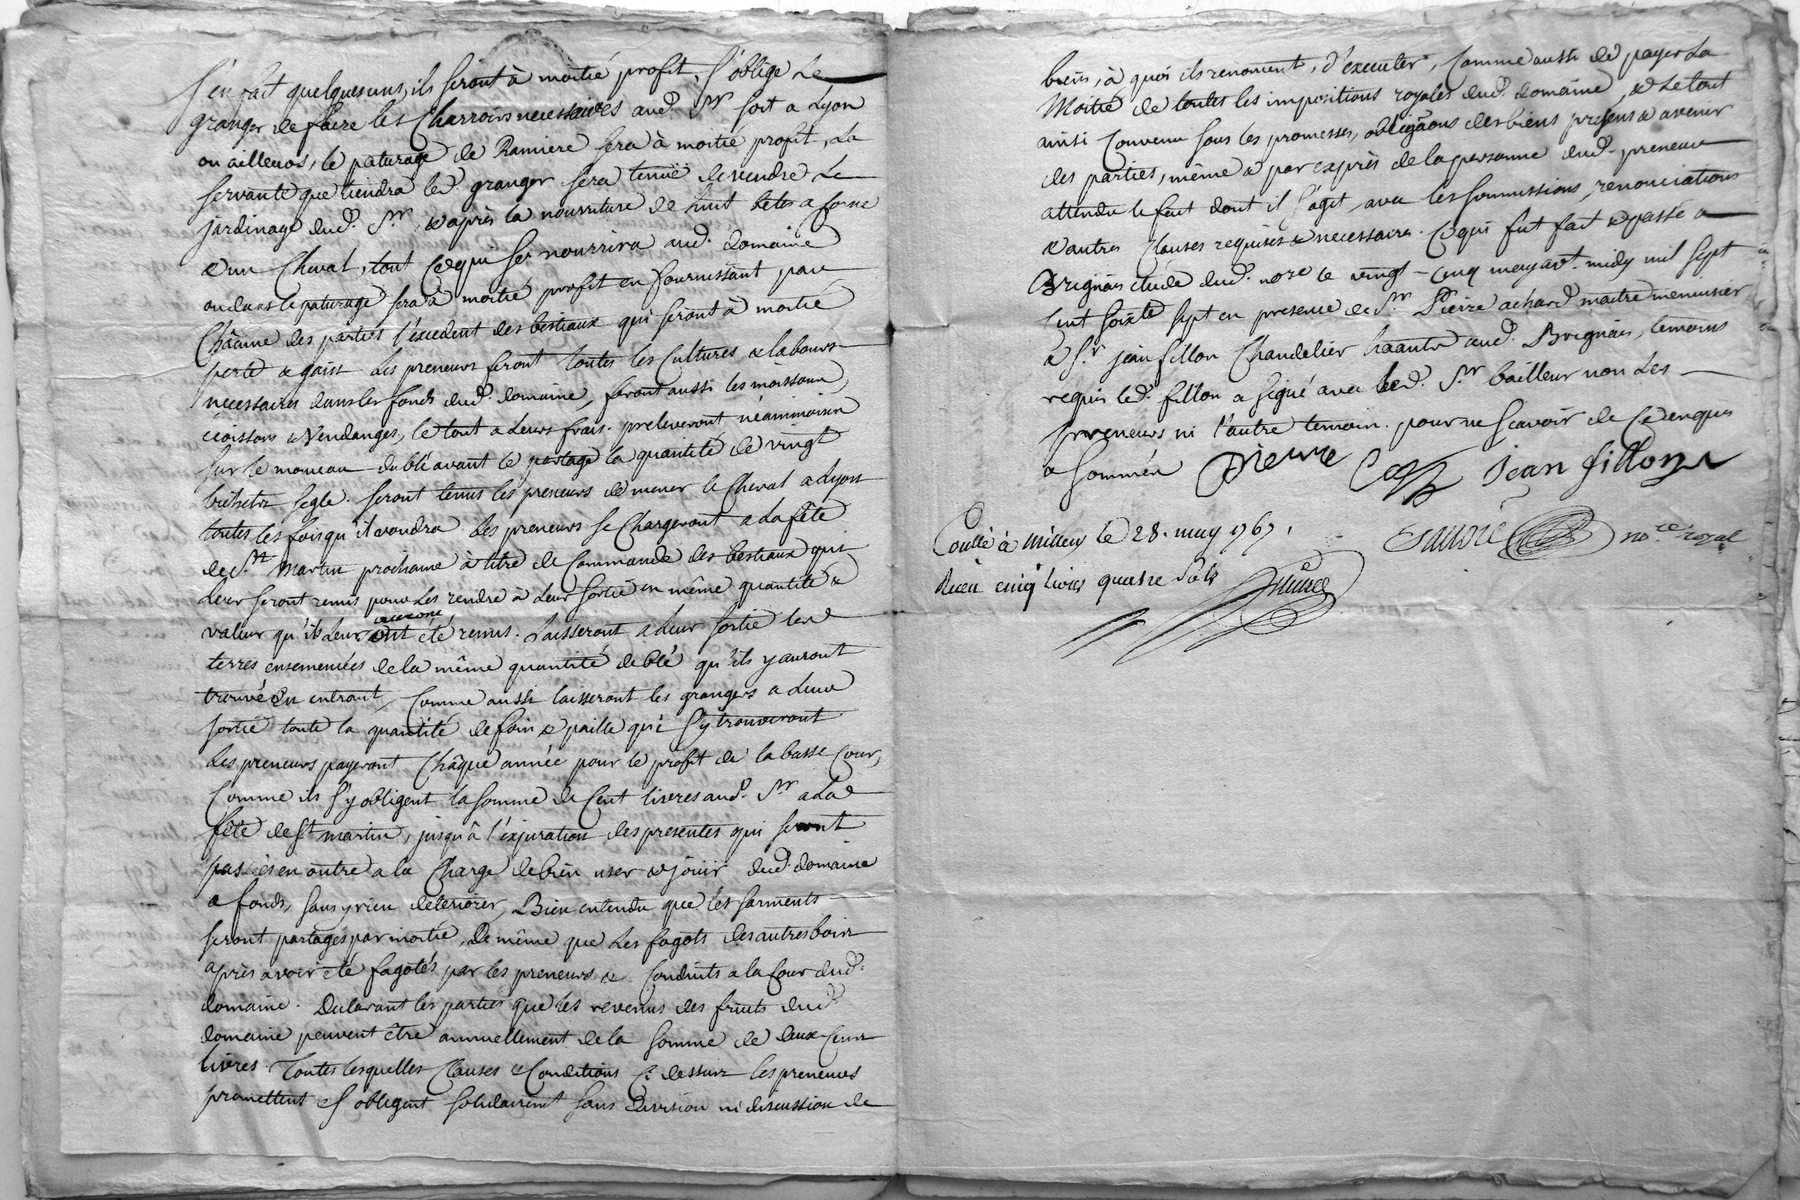 s'en fait quelquesuns, ils seront à moitié profit, s'oblige Le
granger de faire les Charrois necessaires aud. Sr. soit a Lyon
ou ailleurs, le paturage de Ramiere sera à moitié profit, La
servante que tiendra led. granger sera tenüe de vendre Le
jardinage dud. Sr., & après la nourriture de huit bêtes a corne
& un Cheval, tout Ce qui se nourrira aud. domaine
ou dans le paturage sera à moitié profit en fournissant par
Chacune des parties l'excedent des bestiaux qui seront à moitié
perte & gain. Les preneurs feront toutes les Cultures & labours
necessaires dans les fonds dud. domaine, feront aussi les moissons,
& Vendanges, le tout a Leurs frais. preleveront néanmoins
sur le monceau du blé avant le partage la quantité de vingt
bichets segle. seront tenus les preneurs de mener le Cheval a Lyon
toutes les fois qu'il voudra. Les preneurs se Chargeront a La fête
de St. Martin prochaine à titre de Commande des bestiaux qui
Leur seront remis pour Les rendre à Leur sortie en même quantité &
valeur qu'ils Leur auront été remis. Laisseront a Leur sortie les
terres ensemencées de la même quantité de blé qu'ils y auront
trouvé en entrant, Comme aussi laisseront les grangers a Leur
sortie toute la quantité de foin & paille qui s'y trouveront
Les preneurs payeront Châque année pour le profit de la basse Cour,
Comme ils s'y obligent la somme de Cent livres aud. Sr. a La
fête de St martin, jusqu'à l'expiration des presentes qui seront
passées en outre a la Charge de bien user & jouir dud. domaine
& fonds, sans y rien deteriorer, Bien entendu que les sarments
seront partagés par moitié, De même que Les fagots des autres bois
après avoir été fagotés par les preneurs & Conduits a la Cour dud.
domaine. Declarant les parties que les revenus des fruits dud.
domaine peuvent être annuellement de la somme de deux Cent
livres. Toutes lesquelles Clauses & Conditions Ci dessus les preneurs
promettent & s'obligent solidairement sans Division ni discussion de
biens, à quoi ils renoncent, d'executer, Comme aussi de payer La
Moitié de toutes les impositions royales dud. domaine, & Le tout
ainsi Convenu sous les promesses, obligâons des biens presens & avenir
des parties, même & par exprès de la personne dud. preneur
attendu le fait dont il s'agit, avec les soumissions, renonciations
& autres Clauses requises & necessaires. Ce qui fut fait & passé a
Brignais étude dud. nore le vingt-Cinq may avt. midy mil sept
Cent soixte sept en presence de Sr. Pierre achard maitre menuisier
& Sr. jean fillon Chandelier haants aud. Brignais, temoins
requis led. fillon a signé avec led. Sr. bailleur non Les
preneurs ni l'autre temoin. pour ne scavoir de Ce enquis
& sommés jean fillon
nore. royal
Conllé à Millery le 28. may 1767.
Reçu cinq livres quatre sols